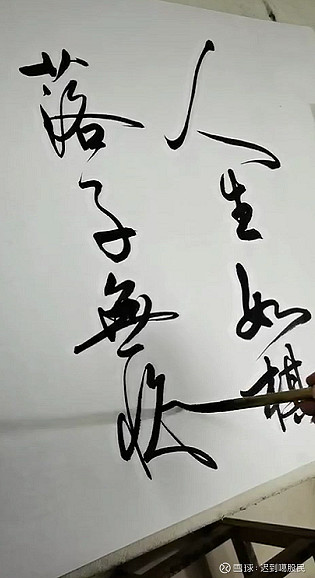 人生如棋
落子無悔
雪球：迟到噶股民